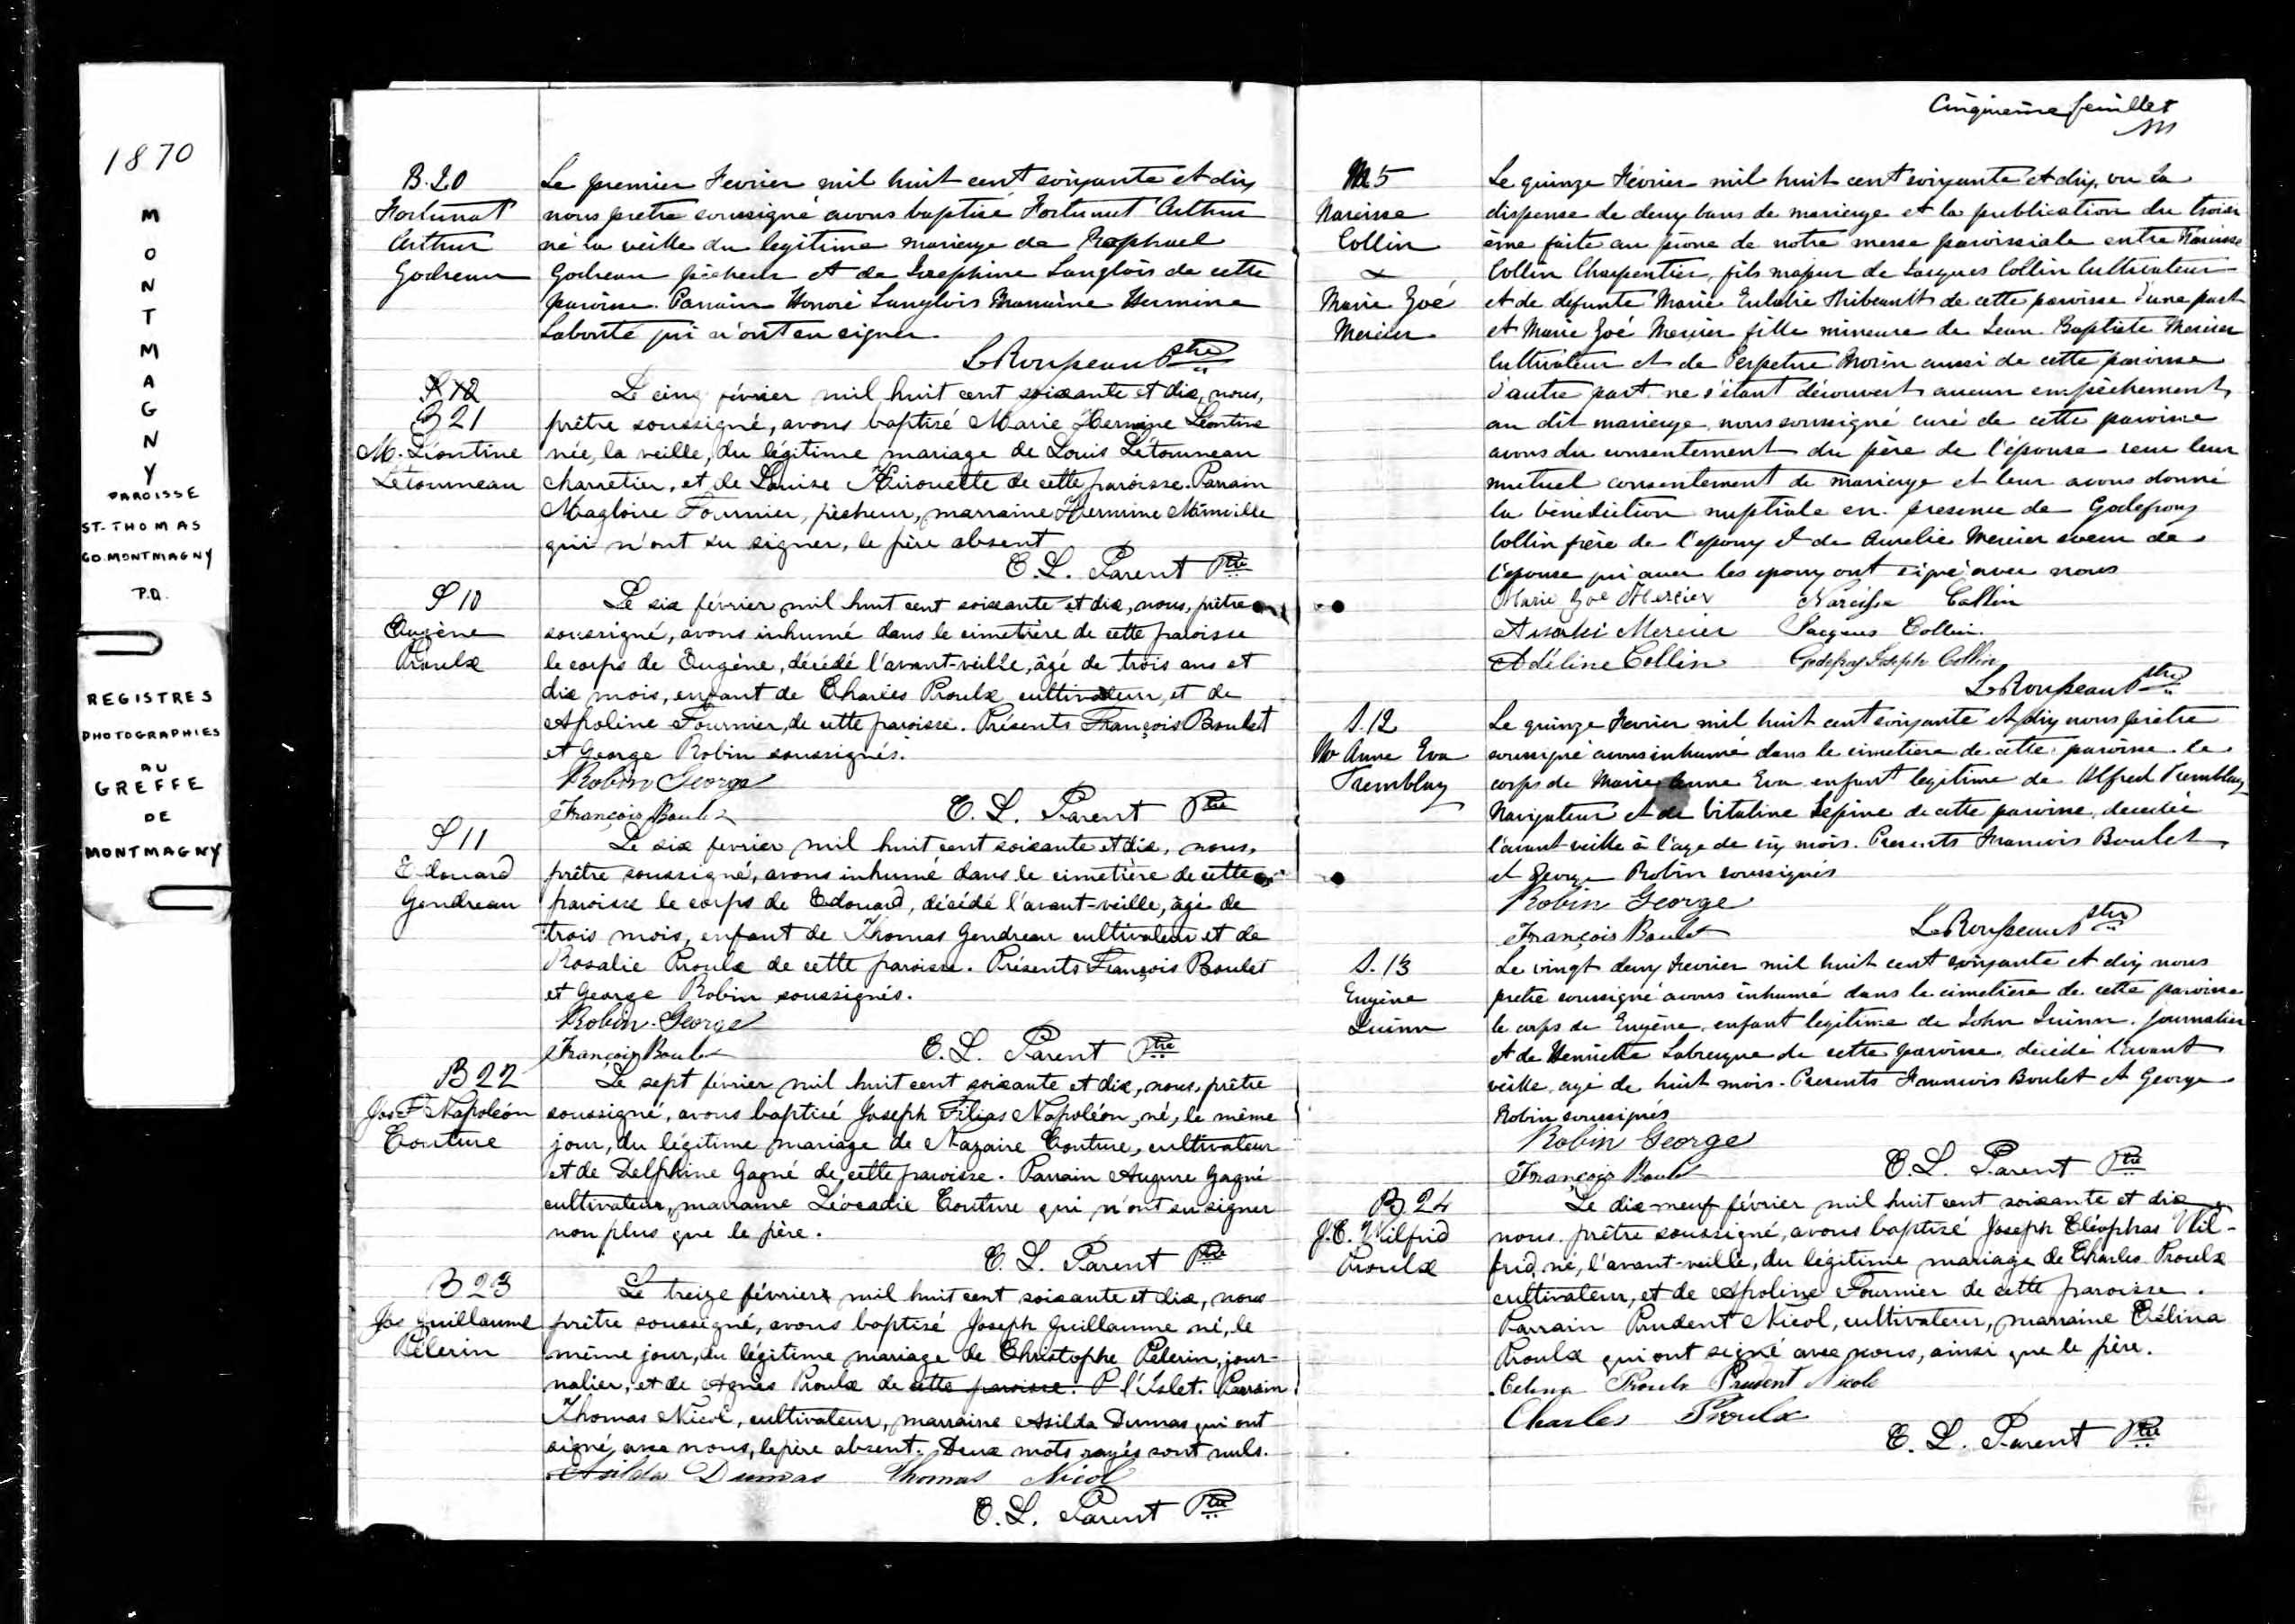 1870
MONTMAGNY
PAROISSE
ST-THOMAS
CO. MONTMAGNY
P.Q.
REGISTRES
PHOTOGRAPHIES
AU
GREFFE
DE
MONTMAGNY
B.20
Fortunat
Arthur
Godreau
Le premier Fevrier mil huit cent soixante et dix
nous pretre soussigné avons baptisé Fortunat Arthur
né la veille du legitime mariage de Raphael
Godreau pêcheur et de Josephine Langlois de cette
paroisse. Parrain Honoré Langlois Marraine Hermine
Labonté qui n'ont su signer.
L. Rousseau Ptre
S 12
B 21
M. Léontine
Letourneau
Le cinq février mil huit cent soixante et dix, nous,
prêtre soussigné, avons baptisé Marie Hermine Léontine
née, la veille, du légitime mariage de Louis Létourneau
charretier, et de Louise Hirouette de cette paroisse. Parrain
Magloire Fournier, pêcheur, marraine Hermine Mainville
qui n'ont su signer, le père absent
E. L. Parent Ptre
S 10
Eugène
Proulx
Le six février mil huit cent soixante et dix, nous, prêtre
soussigné, avons inhumé dans le cimetière de cette paroisse
le corps de Eugène, décédé l'avant-veille, âgé de trois ans et
dix mois, enfant de Charles Proulx cultivateur, et de
Apoline Fournier, de cette paroisse. Présents François Boulet
et George Robin soussignés.
Robin George
François Boulet
E. L. Parent Ptre
S 11
Edouard
Gendreau
Le six fevrier mil huit cent soixante et dix, nous,
prêtre soussigné, avons inhumé dans le cimetière de cette
paroisse le corps de Edouard, décédé l'avant-veille, âgé de
trois mois, enfant de Thomas Gendreau cultivateur et de
Rosalie Proulx de cette paroisse. Présents François Boulet
et George Robin soussignés.
Robin George
François Boulet
E. L. Parent Ptre
B 22
Jos F. Napoléon
Couture
Le sept février mil huit cent soixante et dix, nous, prêtre
soussigné, avons baptisé Joseph Filias Napoléon, né, le même
jour, du légitime mariage de Nazaire Couture, cultivateur
et de Delphine Gagné de cette paroisse. Parrain Augure Gagné
cultivateur, marraine Léocadie Couture qui n'ont su signer
non plus que le père.
E. L. Parent Ptre
B 23
Jos Guillaume
Pélerin
Le treize février mil huit cent soixante et dix, nous
prêtre soussigné, avons baptisé Joseph Guillaume né, le
même jour, du légitime mariage de Christophe Pélerin, jour-
nalier, et de Agnès Proulx de cette paroisse. P l'Islet. Parrain
Thomas Nicol, cultivateur, marraine Asilda Dumas qui ont
signé avec nous, le père absent. Deux mots rayés sont nuls.
Asilda Dumas Thomas Nicol
E. L. Parent Ptre
Cinquième feuillet
M 5
Narcisse
Collin
&
Marie Zoé
Mercier
Le quinze Février mil huit cent soixante et dix, vu la
dispense de deux bans de mariage et la publication du troisi
ème faite au prône de notre messe paroissiale entre Narcisse
Collin Charpentier, fils majeur de Jacques Collin Cultivateur
et de defunte Marie Eulalie Thibeault de cette paroisse d'une part
et Marie Zoé Mercier fille mineure de Jean-Baptiste Mercier
Cultivateur et de Perpetue Morin aussi de cette paroisse
d'autre part, ne s'étant découvert aucun empêchement
au dit mariage, nous soussigné curé de cette paroisse
avons du consentement du père de l'épouse reçu leur
mutuel consentement de mariage et leur avons donné
la bénédiction nuptiale en presence de Godefroy
Collin frère de l'epoux et de Aurelie Mercier soeur de
l'épouse qui avec les epoux ont signé avec nous
Marie Zoé Mercier Narcisse Collin
Mercier Jacques Collin
Adéline Collin Godefroy Joseph Collin
L. Rousseau Ptre
S. 12
M Anne Eva
Tremblay
Le quinze Fevrier mil huit cent soixante et dix nous prêtre
soussigné avons inhumé dans le cimetiere de cette paroisse le
corps de Marie Anne Eva enfant legitime de Alfred Tremblay
Navigateur et de Vitaline Lépine de cette paroisse, decedée
l'avant veille à l'age de six mois. Presents Francois Boulet
et George Robin soussignés
Robin George
François Boulet
L. Rousseau Ptre
S. 13
Eugène
Quinn
Le vingt deux Fevrier mil huit cent soixante et dix nous
pretre soussigné avons inhumé dans le cimetiere de cette paroisse
le corps de Eugène, enfant legitime de John Quinn, journalier
et de Henriette Labrecque de cette paroisse, décédé l'avant
veille, agé de huit mois. Presents Francois Boulet et George
Robin soussignés
Robin George
François Boulet
E. L. Parent Ptre
B 24
J. C. Wilfrid
Proulx
Le dix-neuf février mil huit cent soixante et dix
nous prêtre soussigné, avons baptisé Joseph Cléophas Wil-
frid, né, l'avant-veille, du légitime mariage de Charles Proulx
cultivateur, et de Apoline Fournier de cette paroisse.
Parrain Prudent Nicol, cultivateur, marraine Célina
Proulx qui ont signé avec nous, ainsi que le père.
Celina Proulx Prudent Nicole
Charles Proulx
E. L. Parent Ptre